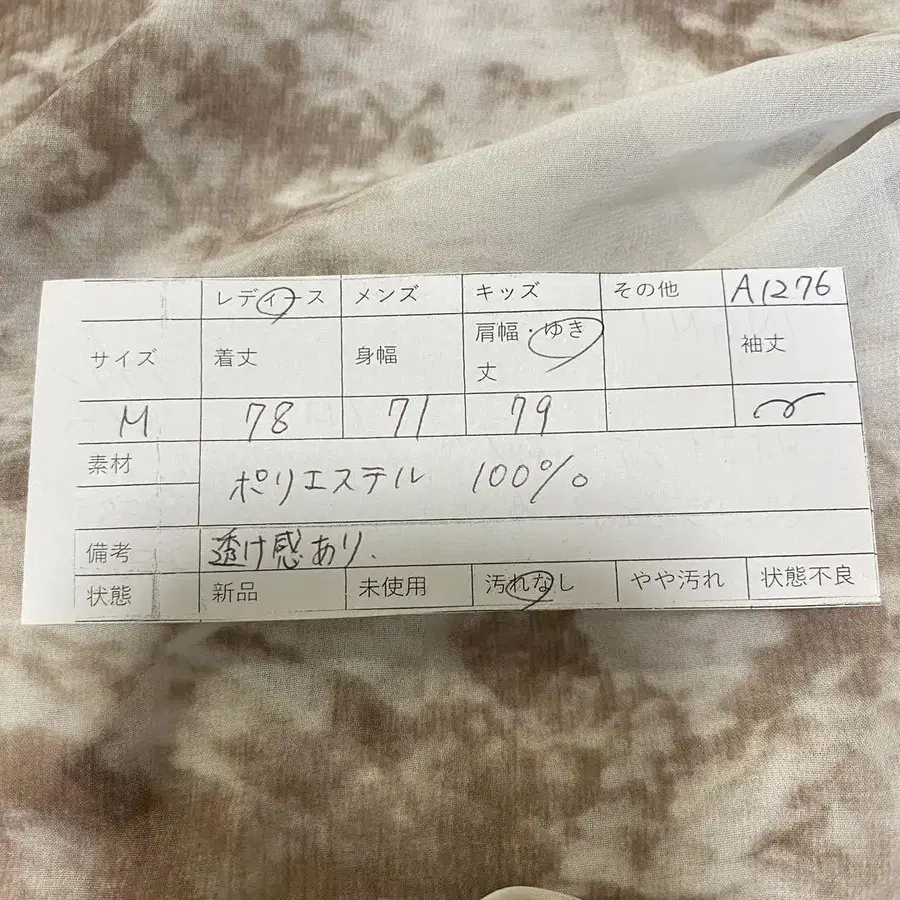 レディース メンズ キッズ その他 A1276
サイズ 着丈 身幅 肩幅・ゆき丈 袖丈
M 78 71 79
素材 ポリエステル 100%
備考 透け感あり.
状態 新品 未使用 汚れなし やや汚れ 状態不良